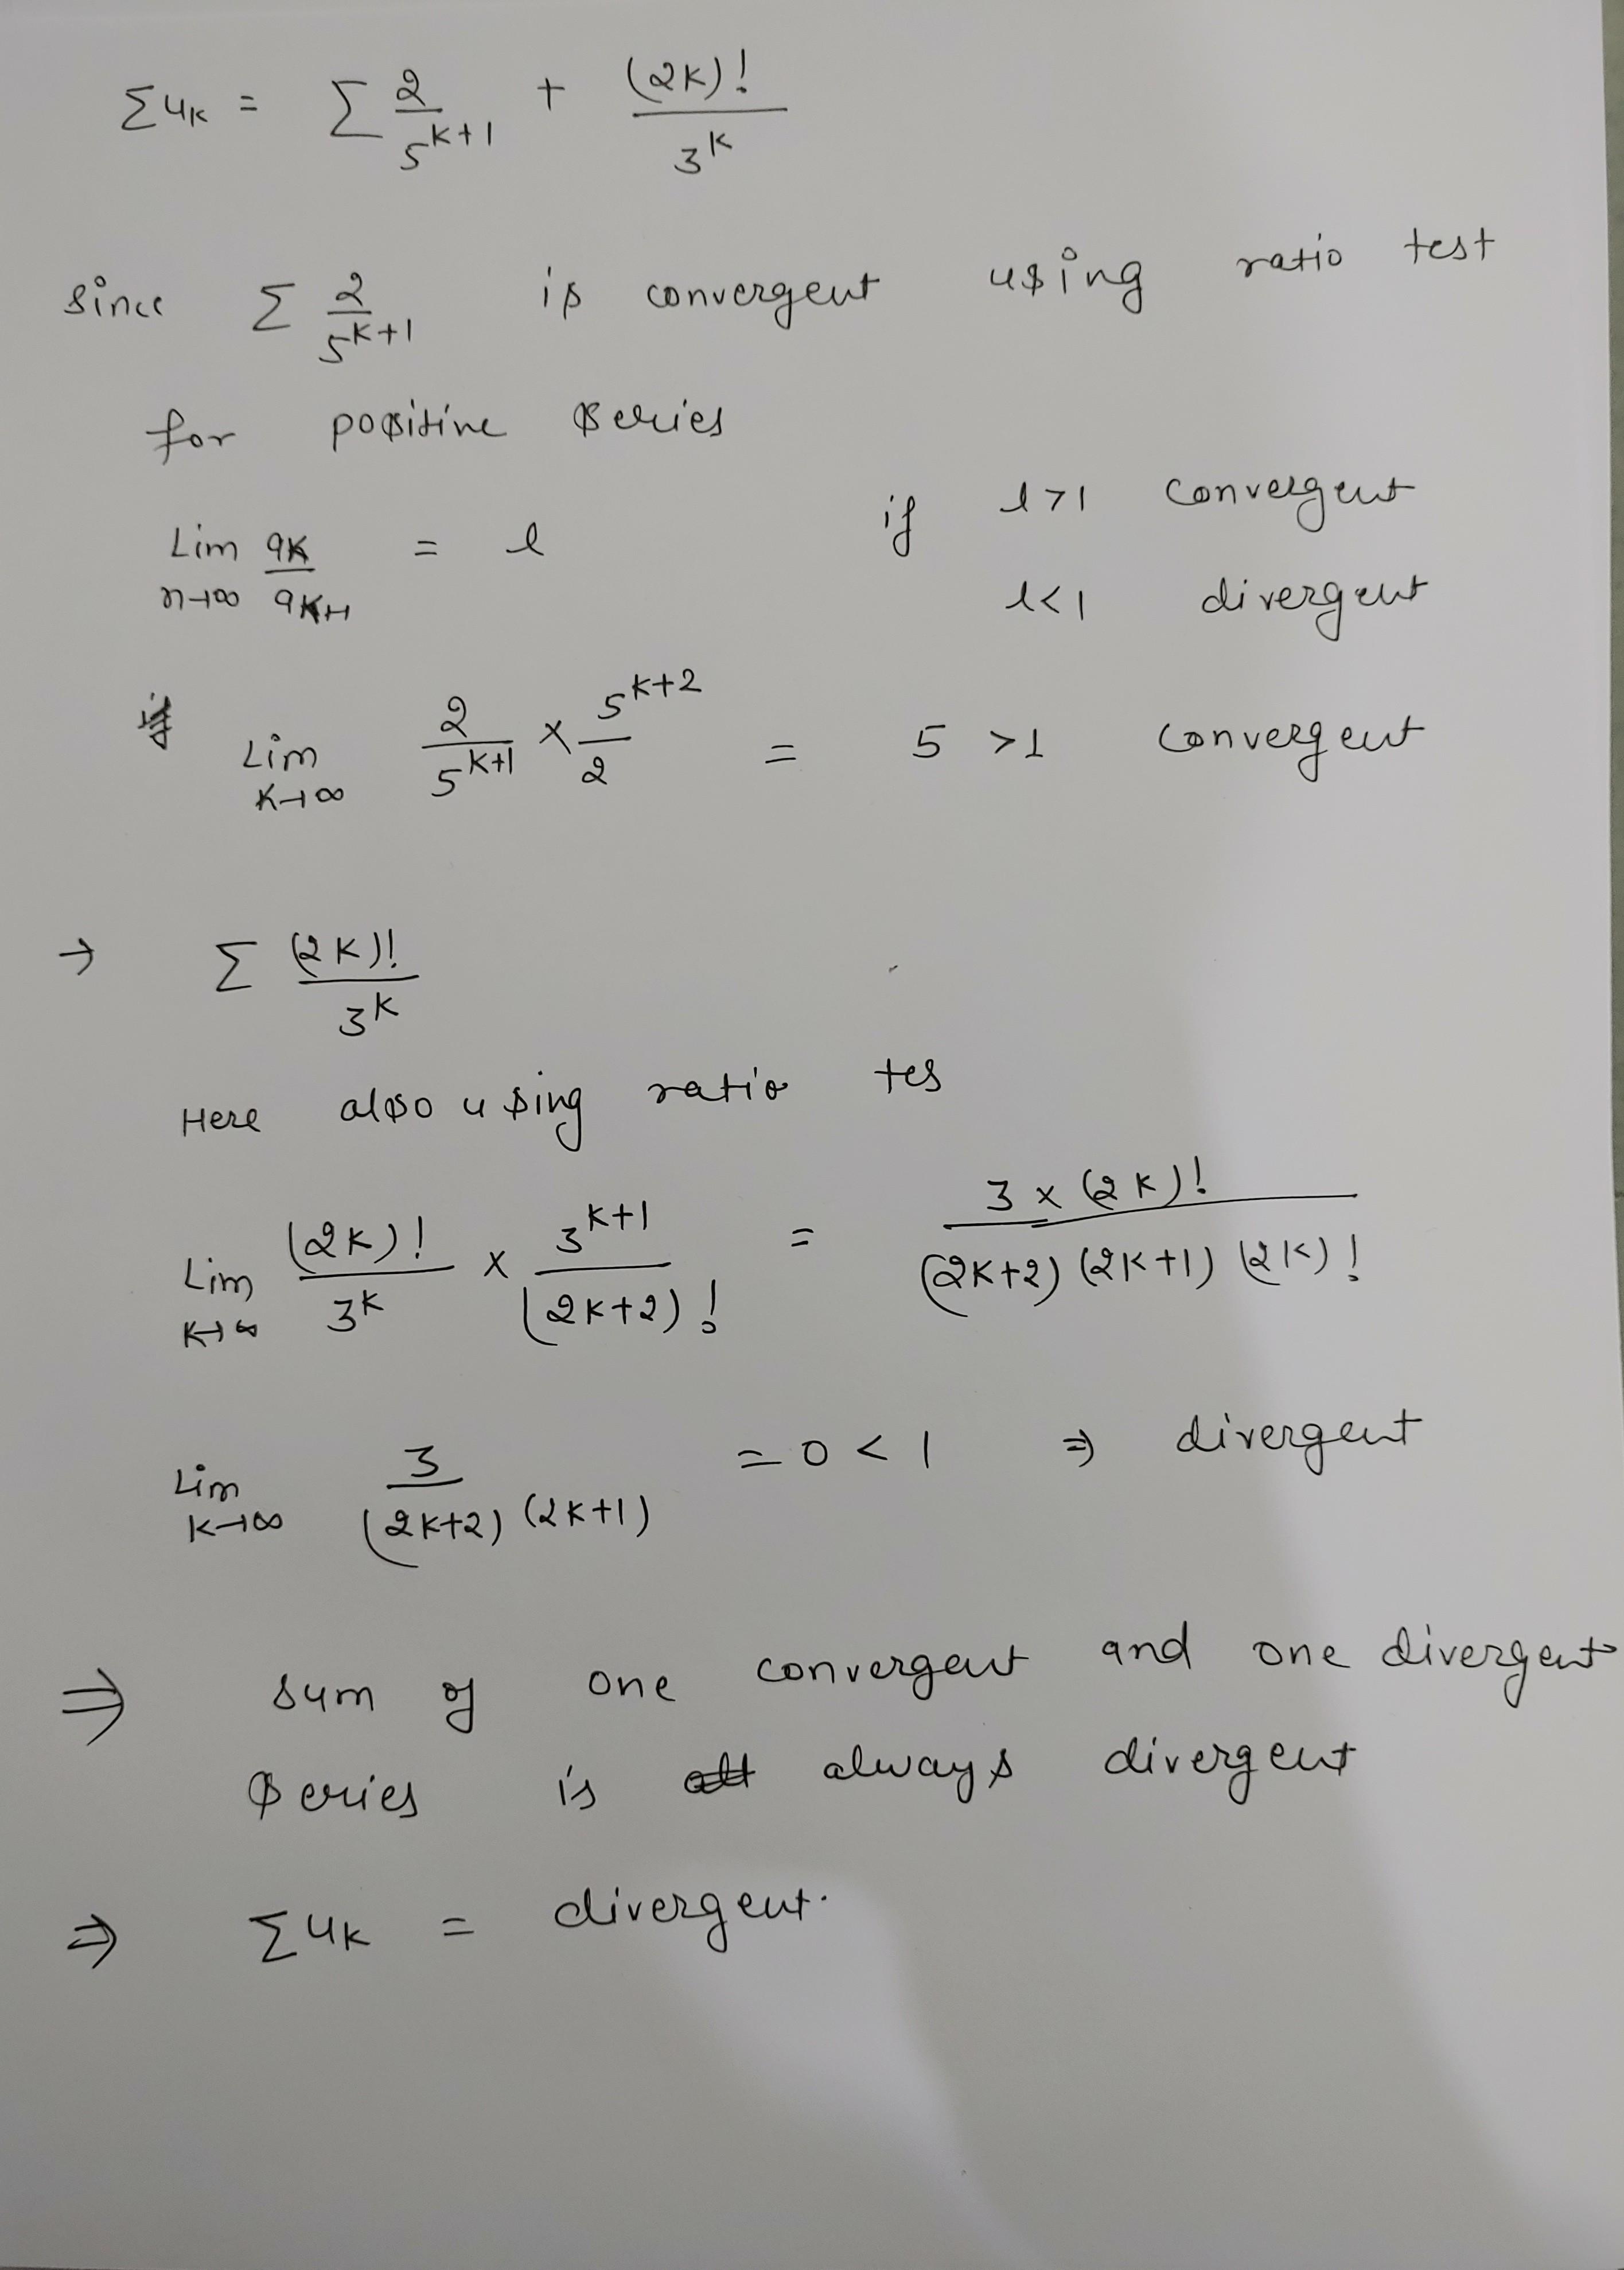 Σuk = Σ 2/5^(k+1) + (2k)!/3^k
since Σ 2/5^(k+1) is convergent using ratio test
for positive series
Lim n→∞ ak/ak+1 = l if l>1 convergent
l<1 divergent
Lim k→∞ 2/5^(k+1) × 5^(k+2)/2 = 5 >1 convergent
→ Σ (2k)!/3^k
Here also using ratio tes
Lim k→∞ (2k)!/3^k × 3^(k+1)/(2k+2)! = 3×(2k)!/(2k+2)(2k+1)(2k)!
Lim k→∞ 3/(2k+2)(2k+1) = 0 < 1 ⇒ divergent
⇒ sum of one convergent and one divergent
series is always divergent
⇒ Σuk = divergent.